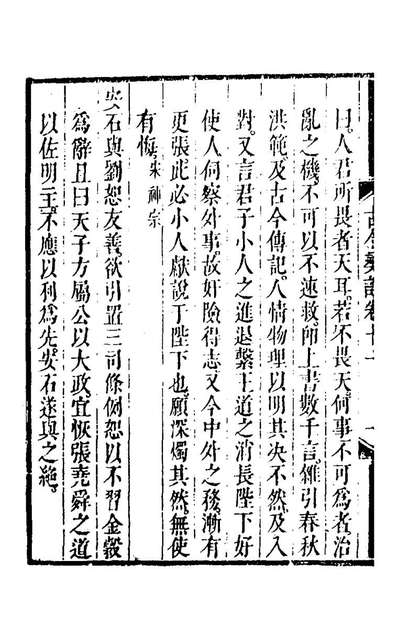 古今藝語卷十一
一
曰人君所畏者天耳若不畏天何事不可爲者治
亂之機不可以不速救師上書數千言雜引春秋
洪範及古今傳記人情物理以明其决不然及入
對又言君子小人之進退繫王道之消長陛下好
使人伺察外事故奸險得志又今中外之務漸有
更張此必小人獻說于陛下也願深燭其然無使
有悔宋神宗
安石與劉恕友善欲引置三司條例恕以不習金穀
爲辭且曰天子方屬公以大政宜恢張堯舜之道
以佐明主不應以利爲先安石遂與之絶